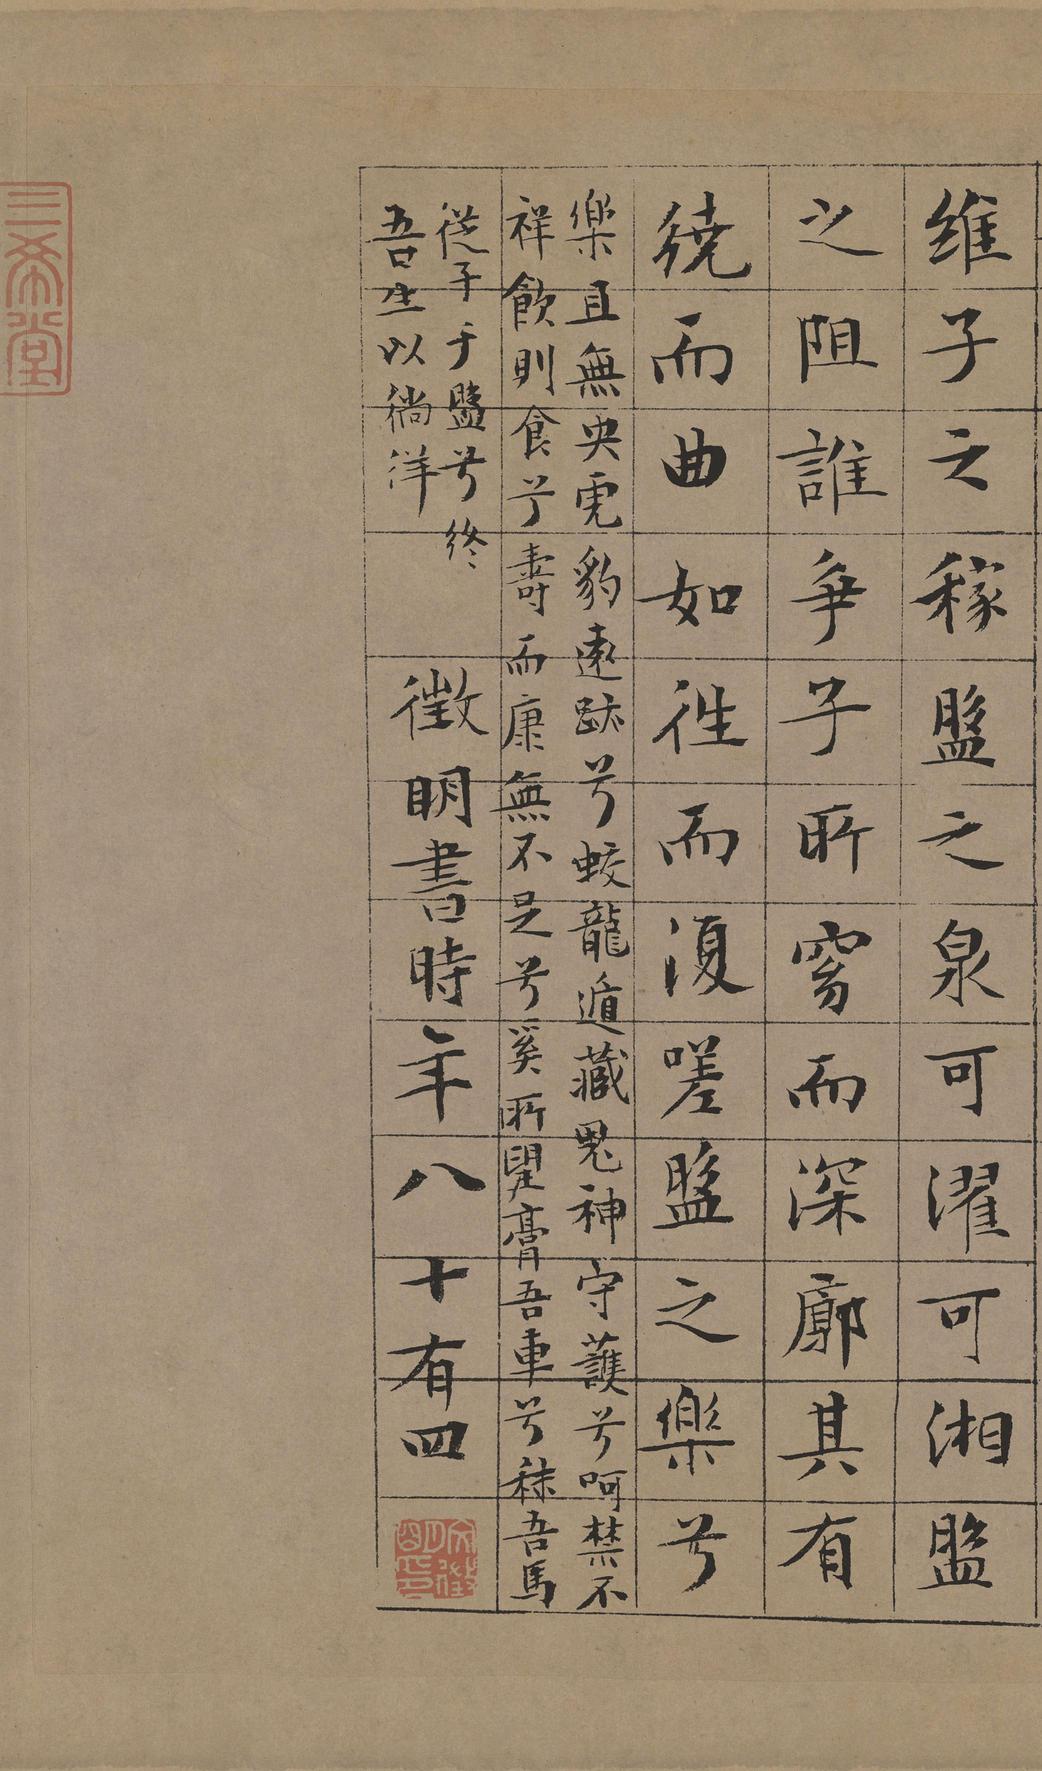 維子之稼盤之泉可濯可湘盤
之阻誰爭子所窈而深廓其有
繞而曲如往而復嗟盤之樂兮
樂且無央虎豹遠跡兮蛟龍遁藏鬼神守護兮呵禁不
祥飲則食兮壽而康無不足兮奚所望膏吾車兮秣吾馬
從子于盤兮終
吾生以徜洋
徵明書時年八十有四
文徵明印
三希堂